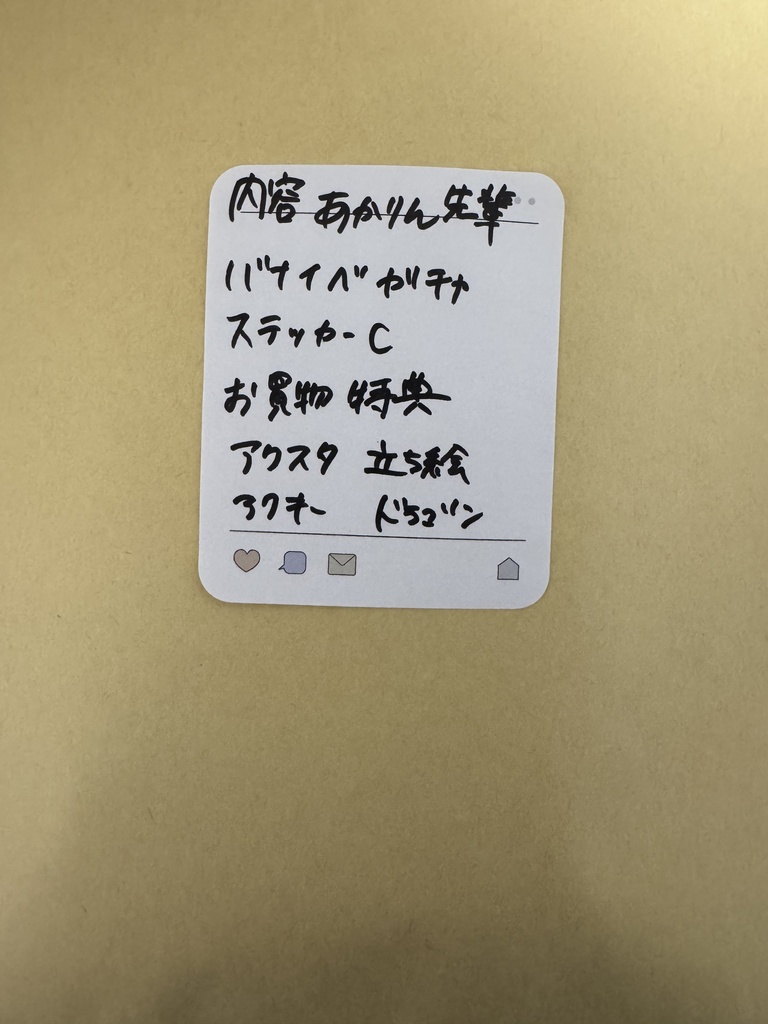 内容 あかりん先輩
バナイベ ガチャ
ステッカー C
お買物 特典
アクスタ 立ち絵
アクキー ドラゴン